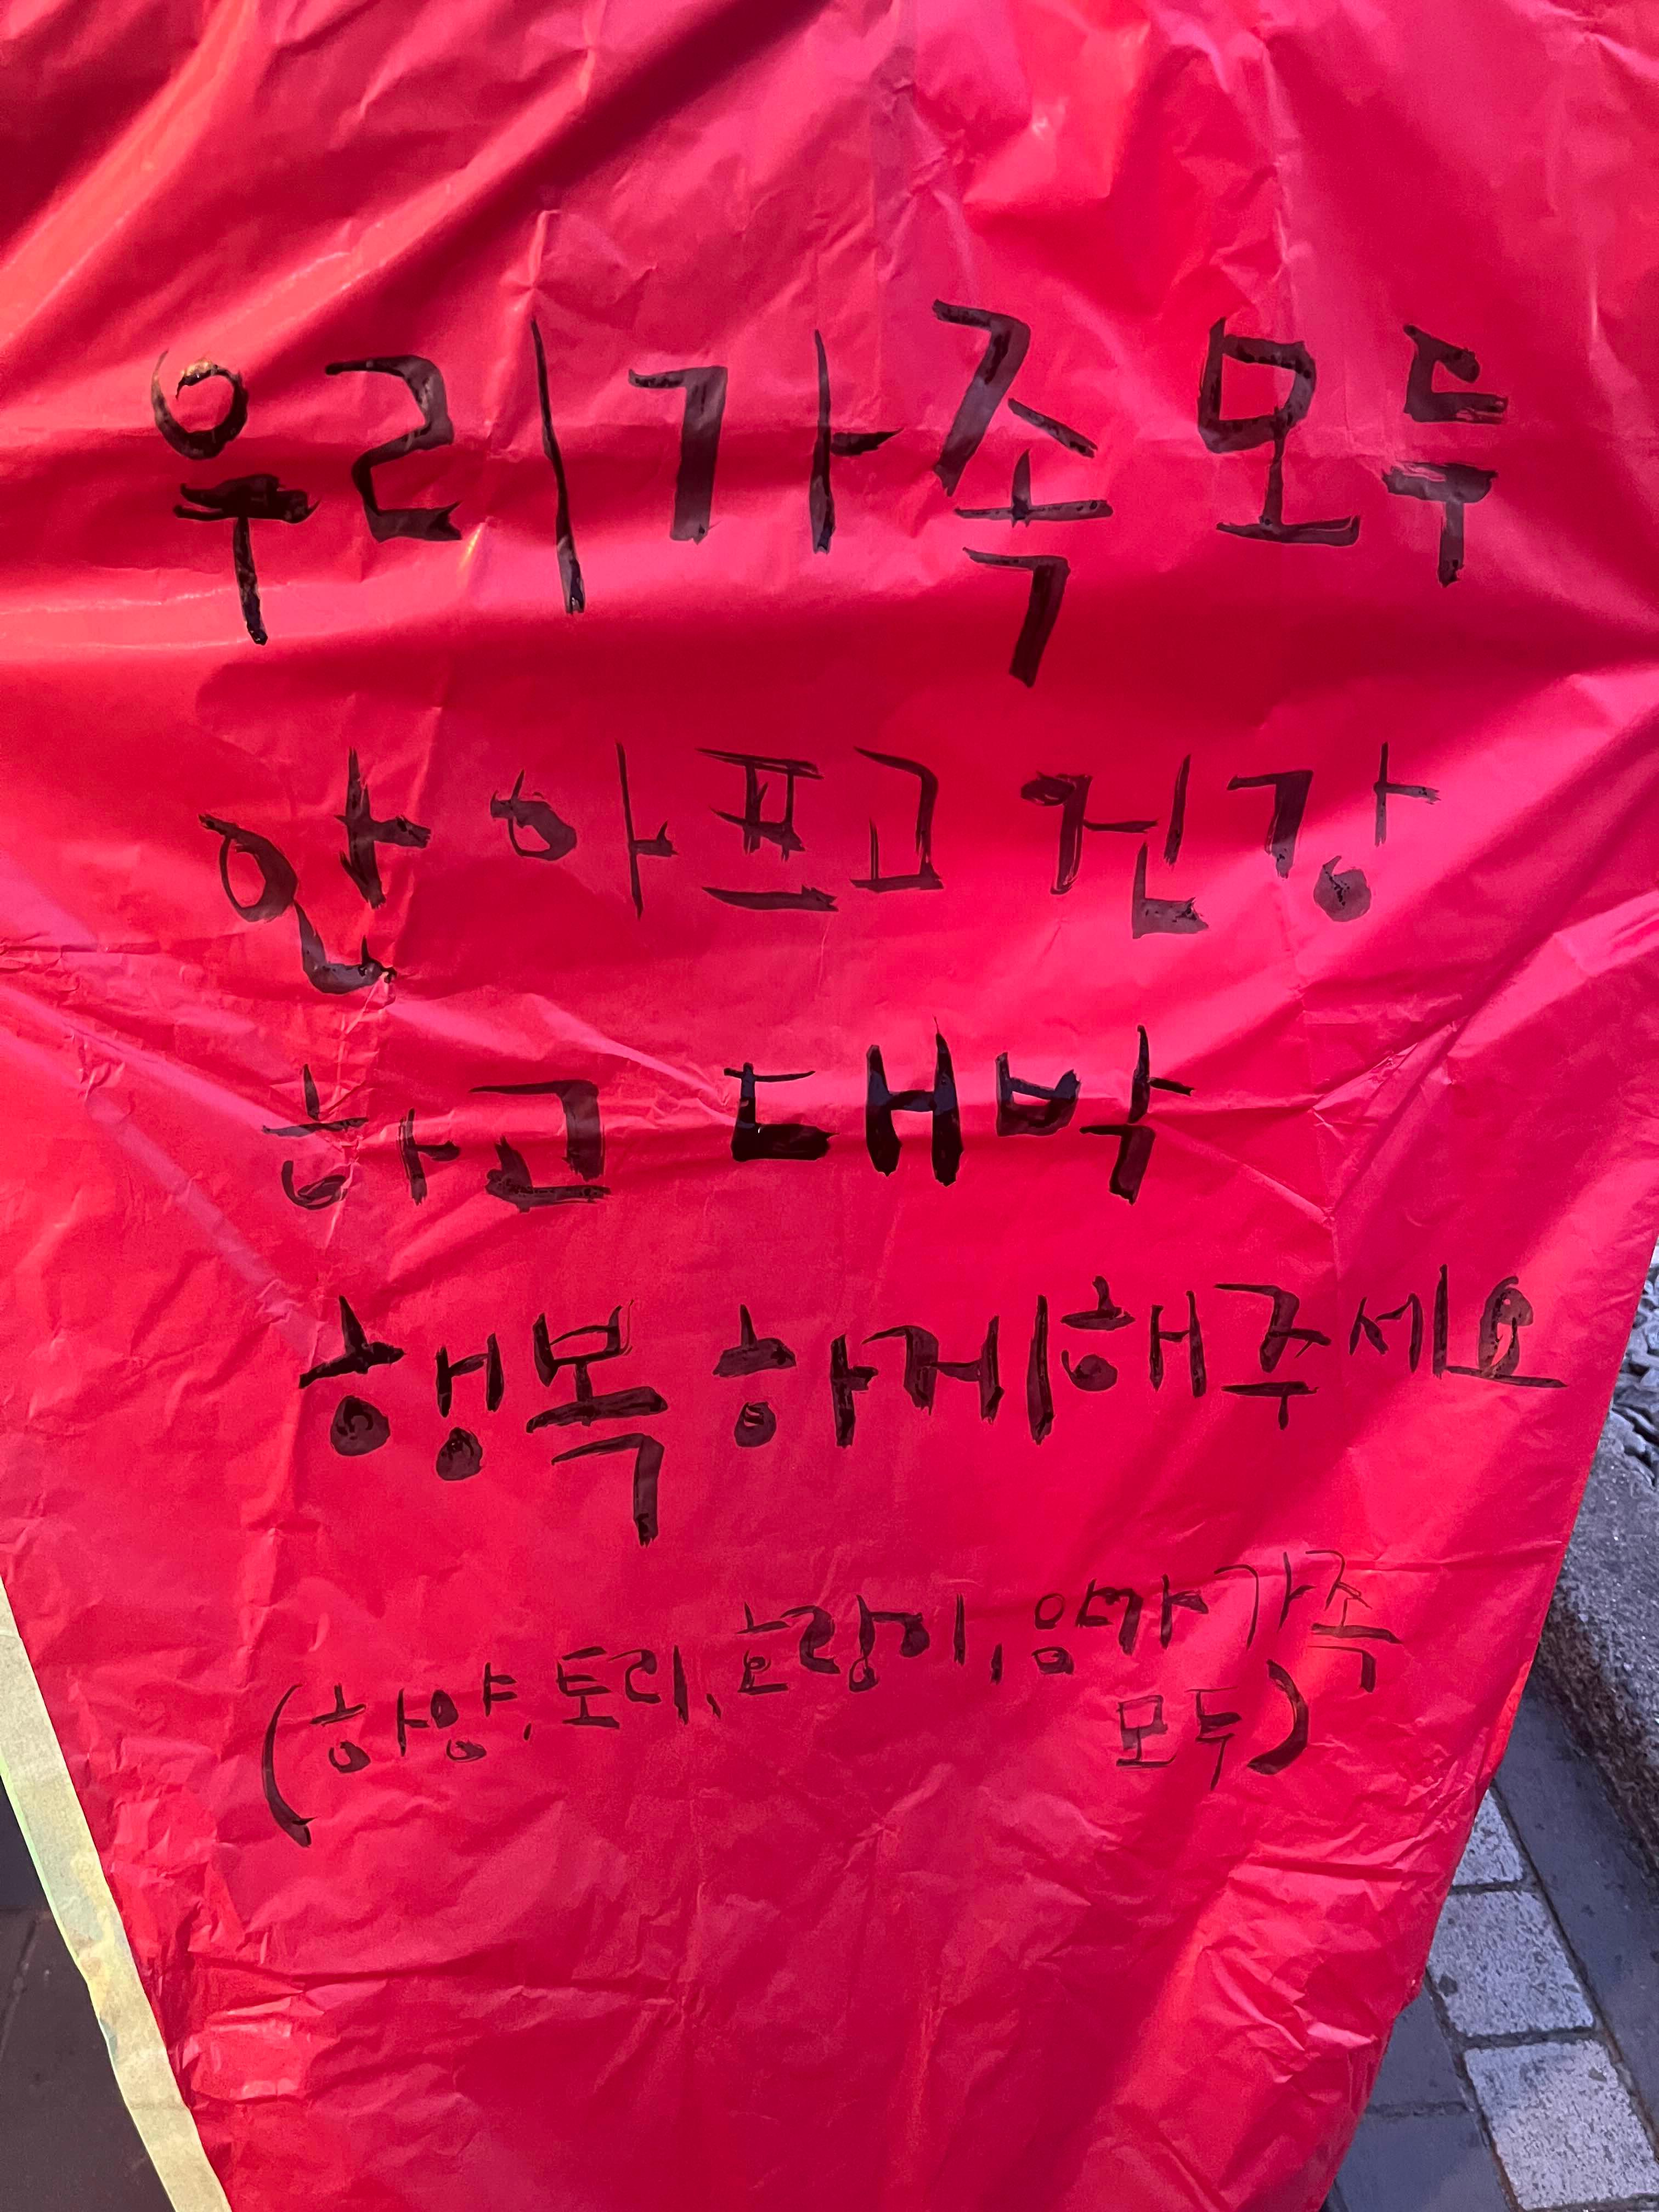 우리가족 모두
안 아프고 건강
하고 대박
행복 하게해주세요
(하양, 토리, 호랑이, 엄마 가족
모두)